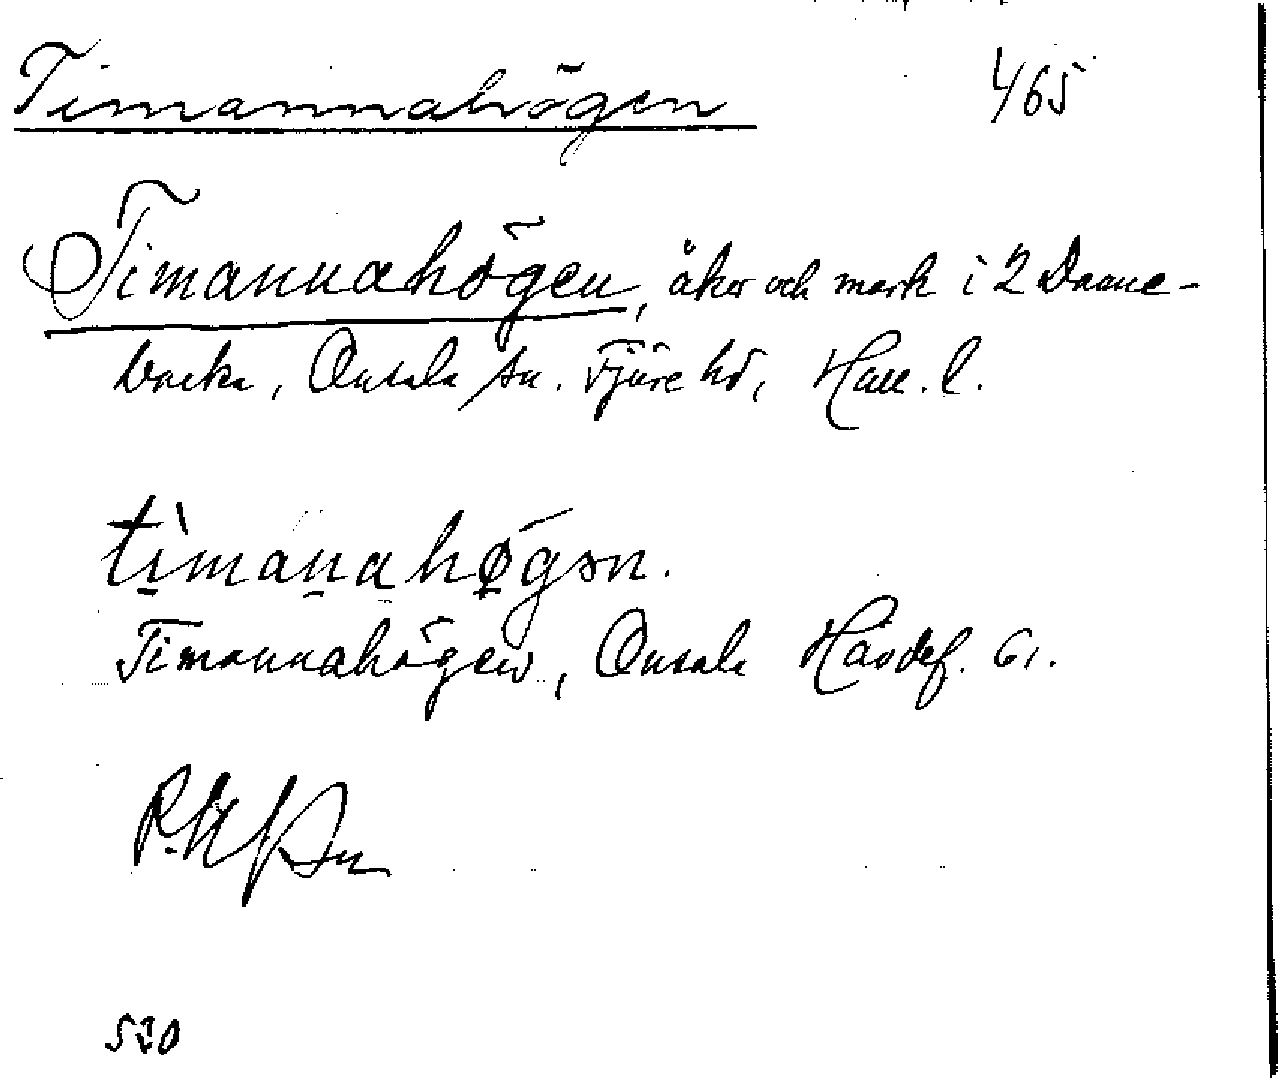 Timannahögen 465
Timannahögen, åker och mark i 2 Danne-
backa, Onsala sn. Fjäre hd, Hall. l.
timanahøgən.
Timannahögen, Onsala
520